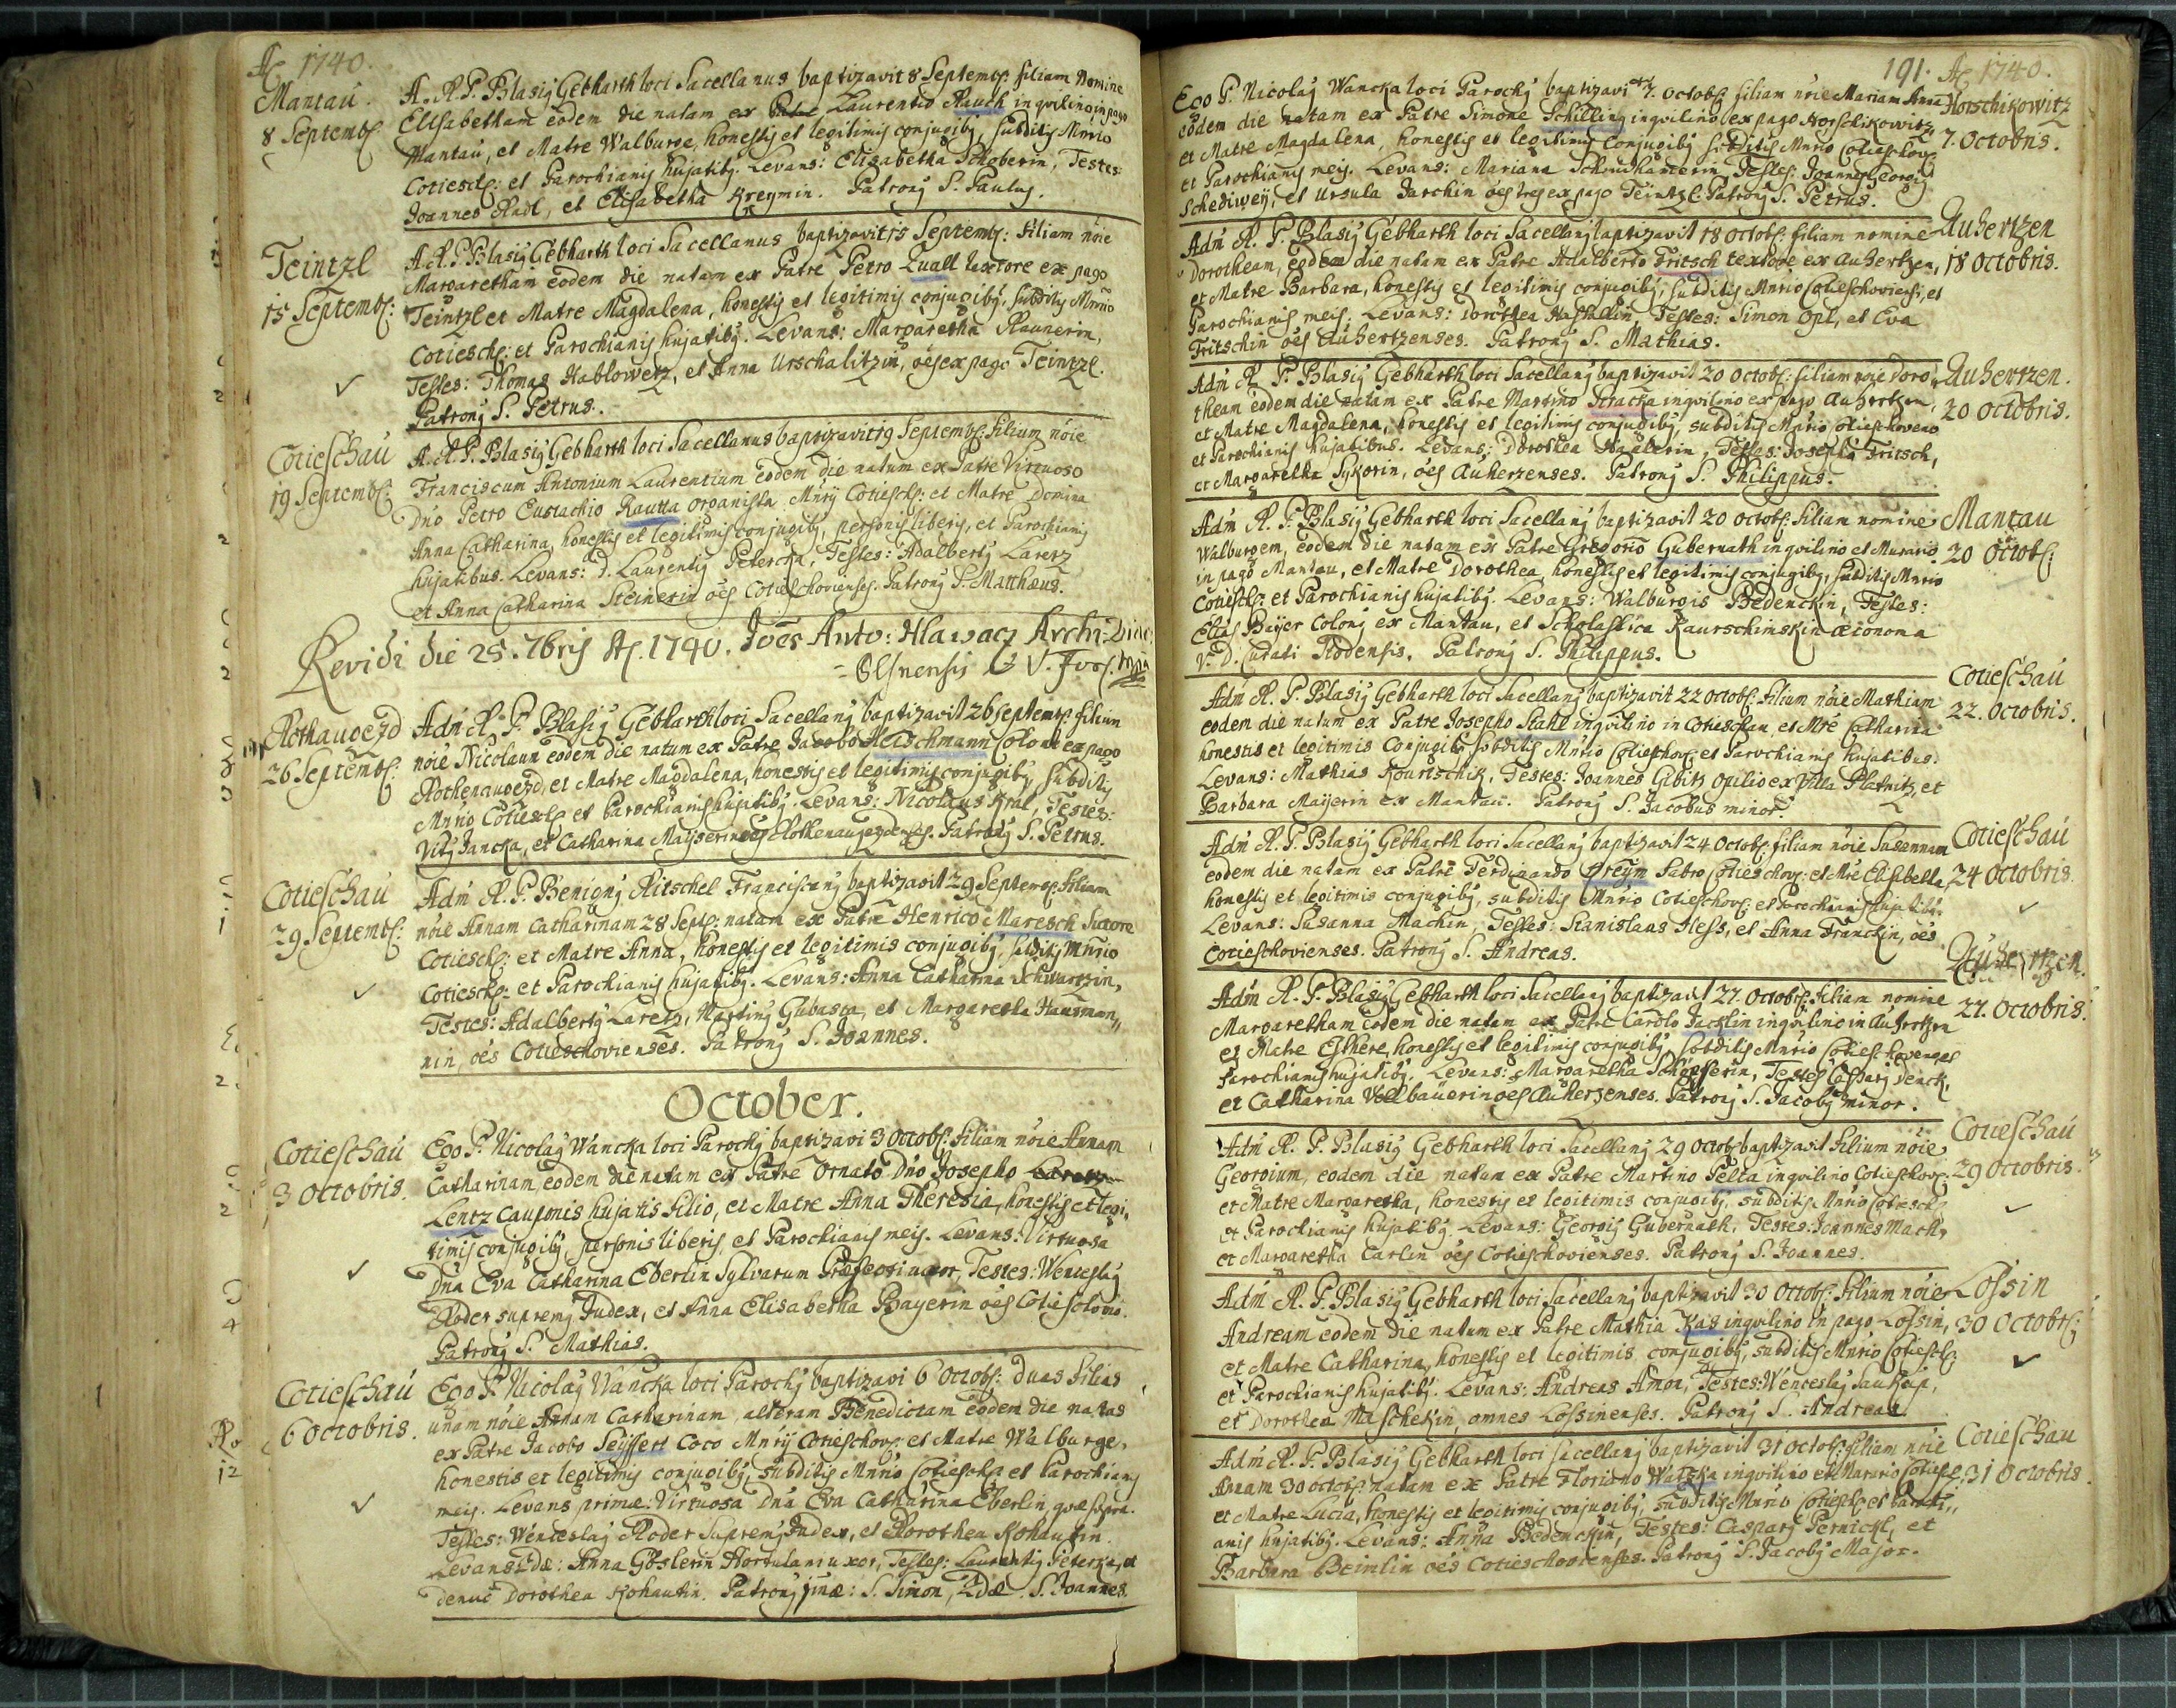 Aō 1740.
Mantau.
8 Septembr:
A. R. P. Blasiȝ Gebharth loci Sacellanus baptizavit 8 Septembr: filiam Nomine
Elisabetham eodem die natam ex Patre Laurentio Rauch inqvilino in pago
Mantau, et Matre Walburge, honestis et legitimis conjugibȝ, subditis Mnrio
Cotiesch: et Parochianis hujatibȝ. Levans: Elisabetha Schoberin, Testes:
Joannes Radl, et Elisabetha Kreymin. Patronȝ S. Pauluȝ.
Teintzl
15 Septembr:
A. R. P. Blasiȝ Gebharth loci Sacellanus baptizavit 15 Septembr: filiam nōie
Margaretham eodem die natam ex Patre Petro Zuall textore ex pago
Teintzl et Matre Magdalena, honestis et legitimis conjugibȝ, subditis Mnrio
Cotiesch: et Parochianis hujatibȝ. Levans: Margaretha Raunerin,
Testes: Thomas Hablowetz, et Anna Urschalitzin, oēs ex pago Teintzl.
Patronȝ S. Petrus.
Cotieschau
19 Septembr:
A. R. P. Blasiȝ Gebharth loci Sacellanus baptizavit 19 Septembr: filium nōie
Franciscum Antonium Laurentium eodem die natum ex Patre Virtuoso
Dno Petro Eustachio Rautta organista Mnrij Cotiesch: et Matre Domina
Anna Catharina, honestis et legitimis conjugibȝ, personis liberis, et Parochianis
hujatibus. Levans: D. Laurentiȝ Peterka, Testes: Adalbertȝ Laretz
et Anna Catharina Steinerin oēs Cotieschovienses. Patronȝ S. Matthæus.
Revidi die 25. 7bris Aō. 1740. Joēs Anto: Hlawacz Archi-Diac:
Plsnensis & V. For. mpa
Rothaugezd
26 Septembr:
Adm̄ R. P. Blasiȝ Gebharth loci Sacellanȝ baptizavit 26 Septembr: filium
nōie Nicolaum eodem die natum ex Patre Jacobo Heischmann Colono ex pago
Rothenaugezd, et Matre Magdalena, honestis et legitimis conjugibȝ, subditis
Mnrio Cotiesch: et Parochianis hujatibȝ. Levans: Nicolaus Kral, Testes:
Vitȝ Jancka, et Catharina Mayserin oēs Rothenaugezdenses. Patronȝ S. Petrus.
Cotieschau
29 Septembr:
Adm̄ R. P. Benignȝ Ritschel Franciscanȝ baptizavit 29 Septembr: filiam
nōie Annam Catharinam 28 Septbr: natam ex Patre Henrico Maresch Sutore
Cotiesch: et Matre Anna, honestis et legitimis conjugibȝ, subditis Mnrio
Cotiesch: et Parochianis hujatibȝ. Levans: Anna Catharina Schwartzin,
Testes: Adalbertȝ Laretz, Martinȝ Gubasta, et Margaretha Hausman„
nin, oēs Cotieschovienses. Patronȝ S. Joannes.
October.
Cotieschau
3 Octobris.
Ego P. Nicolaȝ Wancka loci Parochȝ baptizavi 3 Octobr: filiam nōie Annam
Catharinam eodem die natam ex Patre Ornato Dno Josepho
Lentz Cauponis hujatis filio, et Matre Anna Theresia, honestis et legi„
timis conjugibȝ, personis liberis, et Parochianis meis. Levans: Virtuosa
Dna Eva Catharina Eberlin Sylvarum Præfecti uxor, Testes: Wenceslaȝ
Roder supremȝ Judex, et Anna Elisabetha Bayerin oēs Cotieschovi.
Patronȝ S. Mathias.
Cotieschau
6 Octobris.
Ego P. Nicolaȝ Wancka loci Parochȝ baptizavi 6 Octobr: duas filias
unam nōie Annam Catharinam, alteram Benedictam eodem die natas
ex Patre Jacobo Seyffert Coco Mnrij Cotieschov: et Matre Walburge,
honestis et legitimis conjugibȝ, subditis Mnrio Cotiesch: et Parochianis
meis. Levans primæ: Virtuosa Dna Eva Catharina Eberlin, quæ supra.
Testes: Wenceslaȝ Roder Supremȝ Judex, et Dorothea Kohautin.
Levans 2dæ: Anna Göslerin Hortulani uxor, Testes: Laurentiȝ Peterka, et
denuo Dorothea Kohautin. Patronȝ 1mæ: S. Simon, 2dæ S. Joannes.
191. Aō 1740.
Ego P. Nicolaȝ Wancka loci Parochȝ baptizavi 7. Octobr: filiam nōie Mariam Annam
eodem die natam ex Patre Simone Schilling inqvilino ex pago Horschikowitz
et Matre Magdalena, honestis et legitimis conjugibȝ subditis Mnrio Cotieschov:
et Parochianis meis. Levans: Mariana Testes: Joannes Georgiȝ
Schediwey, et Ursula Jarchin oēs tres ex pago Teintzl. Patronȝ S. Petrus.
Horschikowitz
7. Octobris.
Adm̄ R. P. Blasiȝ Gebharth loci Sacellanȝ baptizavit 18 Octobr: filiam nomine
Dorotheam, eodem die natam ex Patre Adalberto Fritsch textore ex Auhertzen,
et Matre Barbara, honestis et legitimis conjugibȝ, subditis Mnrio Cotieschoviensi, et
Parochianis meis. Levans: Dorothea Testes: Simon Opl, et Eva
Fritschin oēs Auhertzenses. Patronȝ S. Mathias.
Auhertzen
18 Octobris.
Adm̄ R. P. Blasiȝ Gebharth loci Sacellanȝ baptizavit 20 Octobr: filiam nōie Doro„
theam eodem die natam ex Patre Martino Stracka inqvilino ex pago Auhertzen,
et Matre Magdalena, honestis et legitimis conjugibȝ, subditis Mnrio Cotieschovens
et Parochianis hujatibus. Levans: Dorothea Testes: Josephȝ Fritsch,
et Margaretha Sykorin, oēs Auherzenses. Patronȝ S. Philippus.
Auhertzen.
20 Octobris.
Adm̄ R. P. Blasiȝ Gebharth loci Sacellanȝ baptizavit 20 Octobr: filiam nomine
Walburgem, eodem die natam ex Patre Gregorio Gubernath inqvilino et Murario
in pago Mantau, et Matre Dorothea, honestis et legitimis conjugibȝ, subditis Mnrio
Cotiesch: et Parochianis hujatibȝ. Levans: Walburgis Bedenckin, Testes:
Elias Bayer Colonȝ ex Mantau, et Scholastica Kaurschimskin œconoma
V. D. Curati Dodensis. Patronȝ S. Philippus.
Mantau
20 Octobr:
Adm̄ R. P. Blasiȝ Gebharth loci Sacellanȝ baptizavit 22 Octobr: filium nōie Mathiam
eodem die natum ex Patre Josepho Stahl inqvilino in Cotieschau, et Mre Catharina
honestis et legitimis Conjugibȝ subditis Mnrio Cotieschov: et Parochianis hujatibus.
Levans: Mathias Kourtschik, Testes: Joannes Gibitz Opilio ex Villa Platnitz, et
Barbara Mayerin ex Mantau. Patronȝ S. Jacobus minor.
Cotieschau
22. Octobris.
Adm̄ R. P. Blasiȝ Gebharth loci Sacellanȝ baptizavit 24 Octobr: filiam nōie Susannam
eodem die natam ex Patre Ferdinando Preym Fabro Cotieschov: et Mre Elisabetha
honestis et legitimis conjugibȝ, subditis Mnrio Cotieschov: et Parochianis hujatibȝ.
Levans: Susanna Machin, Testes: Stanislaus Hess, et Anna Franckin, oēs
Cotieschovienses. Patronȝ S. Andreas.
Cotieschau
24 Octobris.
Adm̄ R. P. Blasiȝ Gebharth loci Sacellanȝ baptizavit 27. Octobr: filiam nomine
Margaretham eodem die natam ex Patre Carolo Jacklin inqvilino in Auhertzen
et Matre Esthere, honestis et legitimis conjugibȝ, subditis Mnrio Cotieschov: et
Parochianis hujatibȝ. Levans: Margaretha Testes Casparȝ Denck,
et Catharina Vollbauerin oēs Auherzenses. Patronȝ S. Jacobȝ minor.
Auhertzen.
27. Octobris.
Adm̄ R. P. Blasiȝ Gebharth loci Sacellanȝ 29 Octobr: baptizavit filium nōie
Georgium, eodem die natum ex Patre Martino Pelta inqvilino Cotieschov:
et Matre Margaretha, honestis et legitimis conjugibȝ, subditis Mnrio Cotiesch:
et Parochianis hujatibȝ. Levans: Georgiȝ Gubernath, Testes: Joannes Mach,
et Margaretha Carlin oēs Cotieschovienses. Patronȝ S. Joannes.
Cotieschau
29 Octobris.
Adm̄ R. P. Blasiȝ Gebharth loci Sacellanȝ baptizavit 30 Octobr: filium nōie
Andream eodem die natum ex Patre Mathia Kas inqvilino in pago Lossin,
et Matre Catharina, honestis et legitimis conjugibȝ, subditis Mnrio Cotiesch:
et Parochianis hujatibȝ. Levans: Andreas Amor, Testes: Wenceslaȝ Saukup,
et Dorothea Maschekin, omnes Lossinenses. Patronȝ S. Andreas.
Lossin
30 Octobr:
Adm̄ R. P. Blasiȝ Gebharth loci Sacellanȝ baptizavit 31 Octobr: filiam nōie
Annam 30 Octobr: natam ex Patre Floriano Watzka inqvilino et Murario Cotiesch:
et Matre Lucia, honestis et legitimis conjugibȝ, subditis Mnrio Cotiesch: et Parochi„
anis hujatibȝ. Levans: Anna Bedenckin, Testes: Casparȝ Pernickl, et
Barbara Beimlin oēs Cotieschovienses. Patronȝ S. Jacobȝ Major.
Cotieschau
31 Octobris.